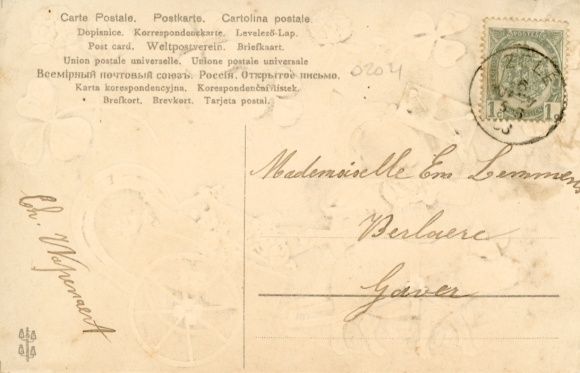 Carte Postale. Postkarte. Cartolina postale
Dopisnice. Korrespondenzkarte. Levelező-Lap.
Post card. Weltpostverein. Briefkaart.
Union postale universelle. Unione postale universale
Всемірный почтовый союзъ. Россія. Открытое письмо.
Karta korespondencyjna. Korespondenční lístek.
Brefkort. Brevkort. Tarjeta postal.
0204
1c 1c
Mademoiselle Em Lemmens
Berlaere
Gaver
Ch. Wapenaert